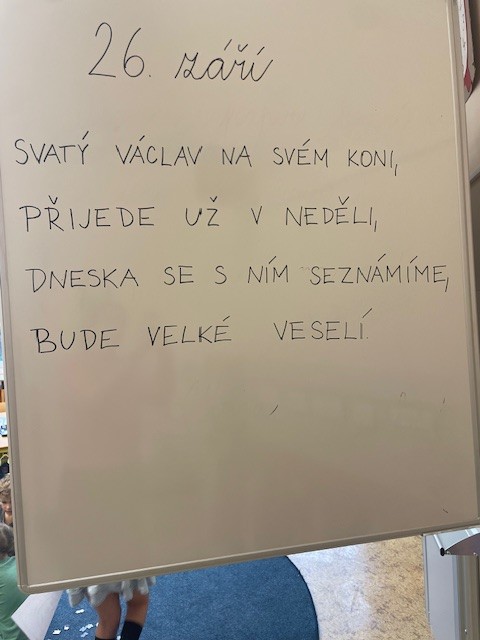 26. září
SVATÝ VÁCLAV NA SVÉM KONI,
PŘIJEDE UŽ V NEDĚLI,
DNESKA SE S NÍM SEZNÁMÍME,
BUDE VELKÉ VESELÍ.